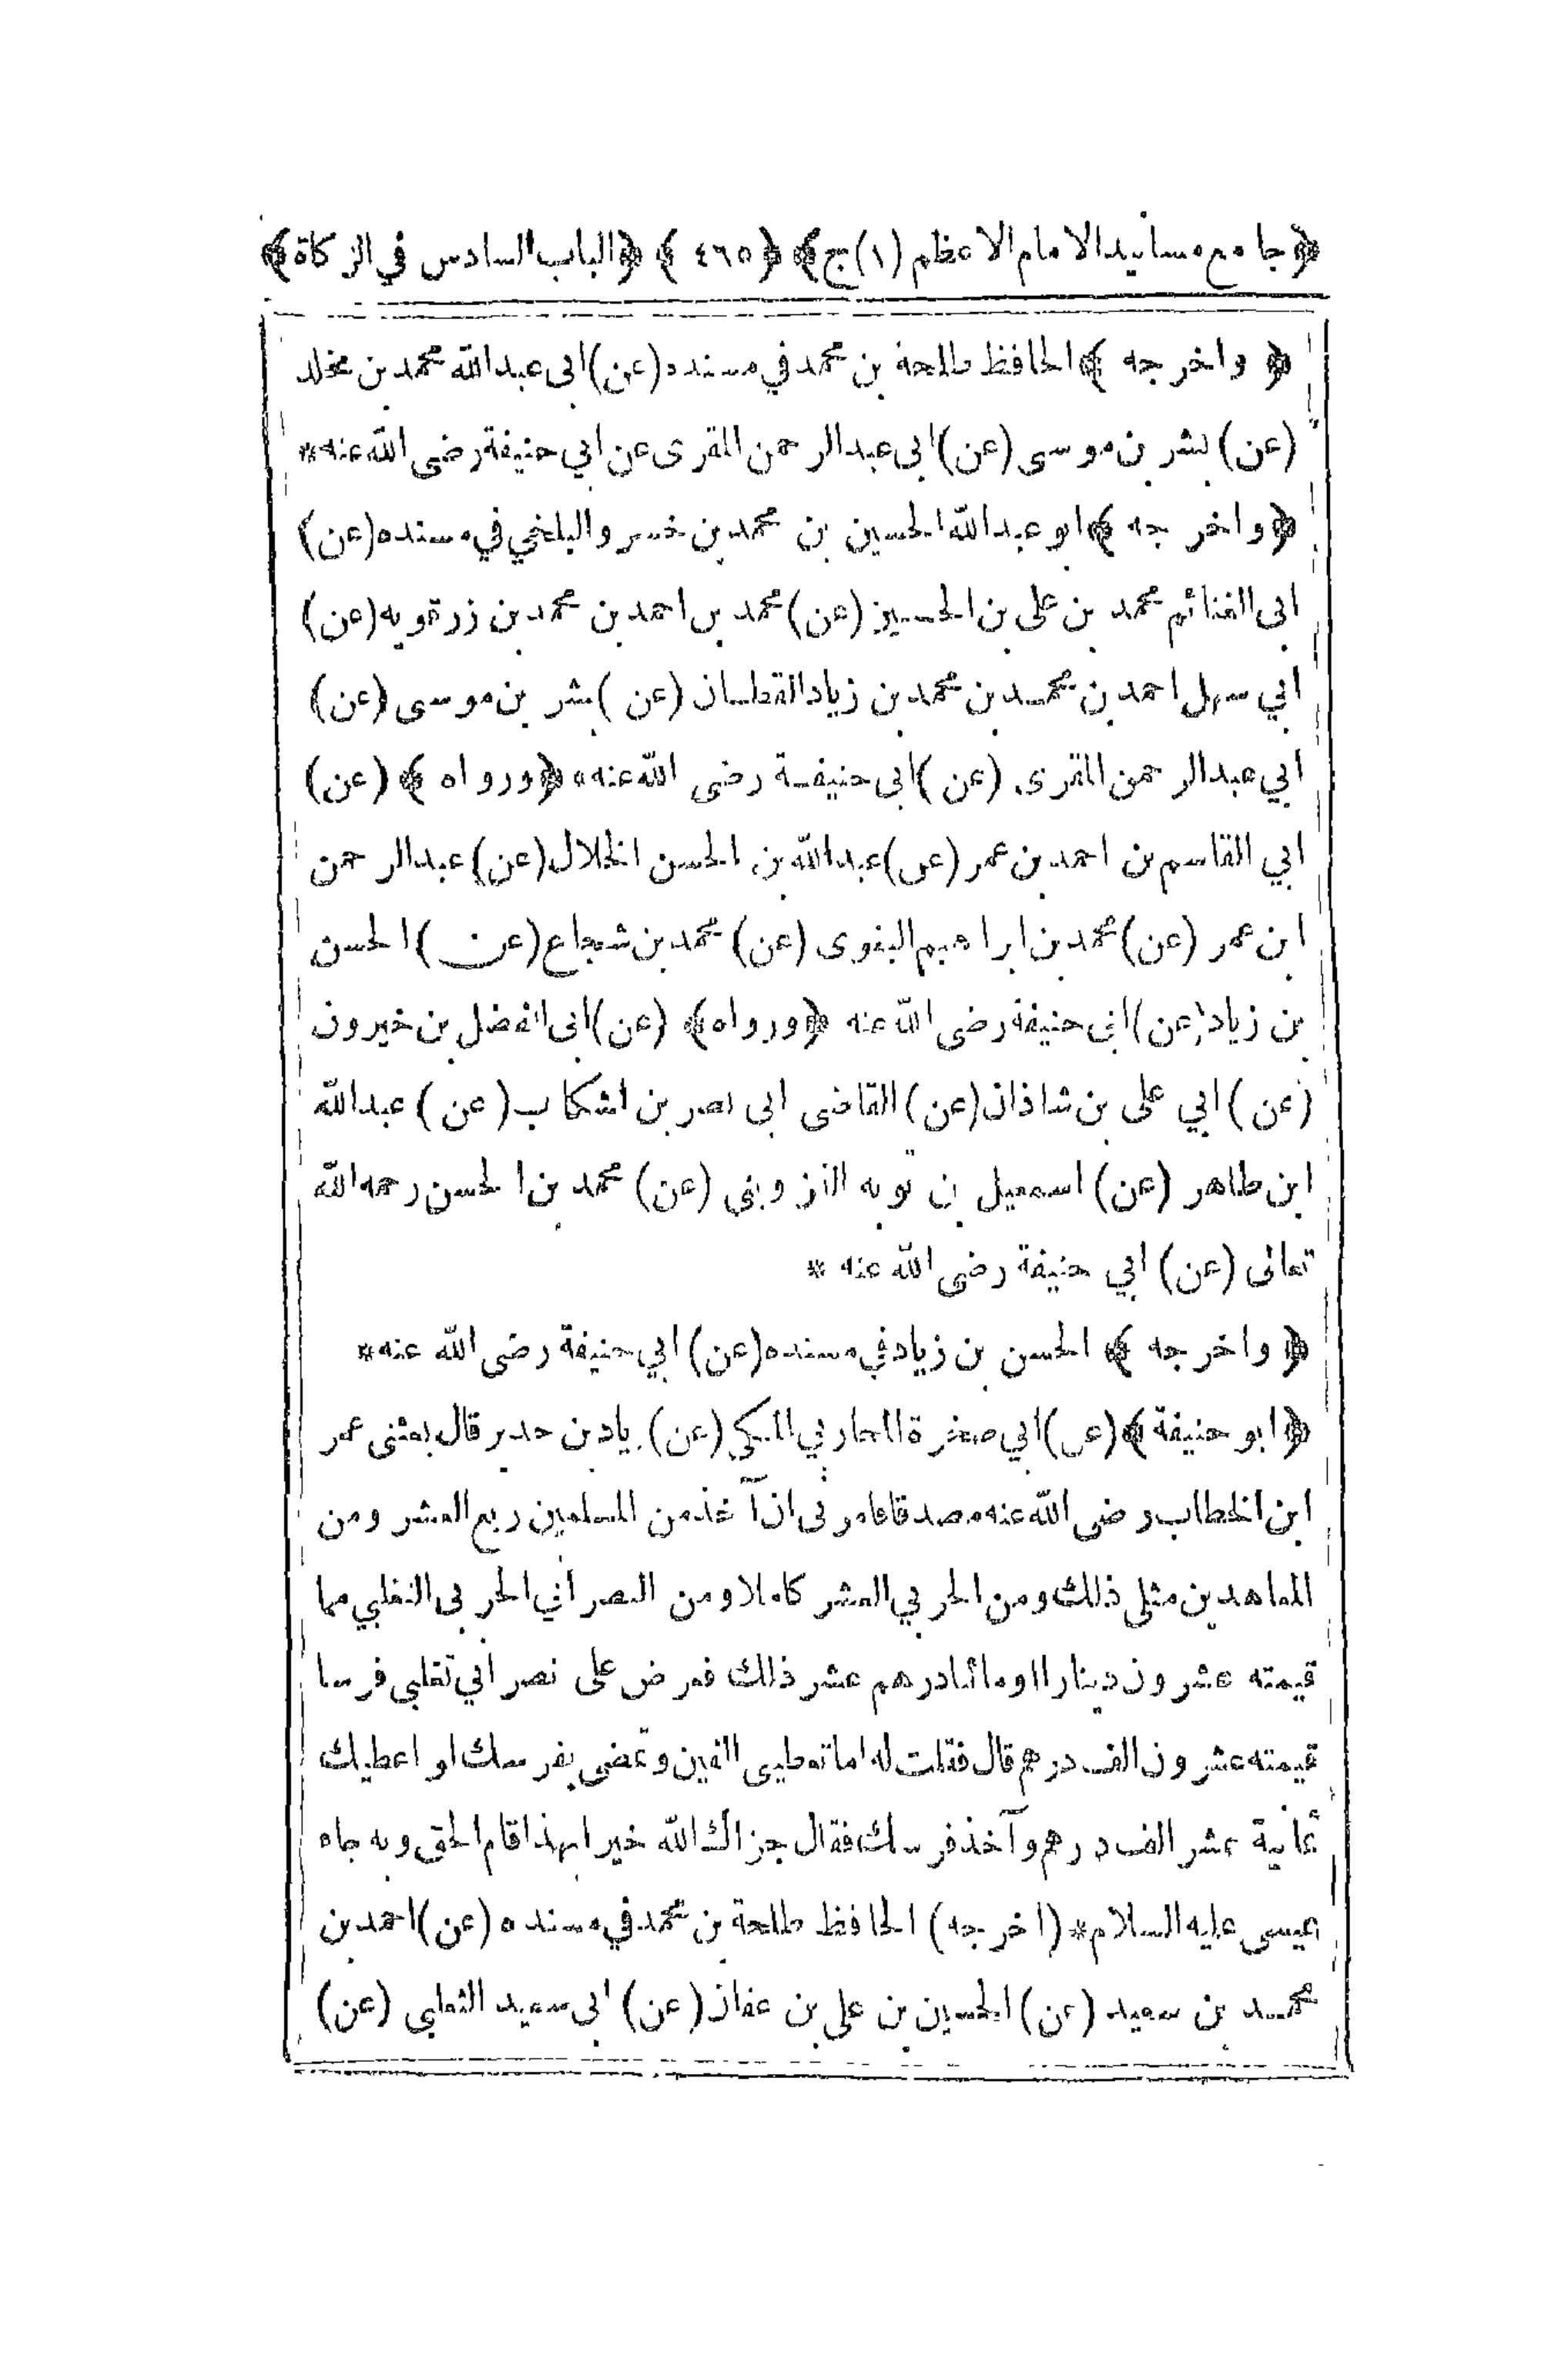 ﴿جامع مسانيد الامام الاعظم (١) ج﴾ ﴿٤٦٥﴾ ﴿الباب السادس في الزكاة﴾
﴿واخرجه﴾ الحافظ طلحة بن محمد في مسنده (عن) ابى عبدالله محمد بن مخلد
(عن) بشر بن موسى (عن) ابى عبدالرحمن المقرى عن ابي حنيفة رضى الله عنه*
﴿واخرجه﴾ ابو عبدالله الحسين بن محمد بن خسرو البلخي في مسنده (عن)
ابى الغنائم محمد بن على بن الحسين (عن) محمد بن احمد بن محمد بن زرقويه (عن)
ابي سهل احمد بن محمد بن محمد بن زياد القطان (عن) بشر بن موسى (عن)
ابي عبدالرحمن المقرى (عن) ابى حنيفة رضى الله عنه* ﴿ورواه﴾ (عن)
ابي القاسم بن احمد بن عمر (عن) عبدالله بن الحسن الخلال (عن) عبدالرحمن
ابن عمر (عن) محمد بن ابراهيم البغوى (عن) محمد بن شجاع (عن) الحسن
بن زياد (عن) ابى حنيفة رضى الله عنه ﴿ورواه﴾ (عن) ابى الفضل بن خيرون
(عن) ابي على بن شاذان (عن) القاضى ابى نصر بن اشكاب (عن) عبدالله
ابن طاهر (عن) اسمعيل بن توبه القزوينى (عن) محمد بن الحسن رحمه الله
تعالى (عن) ابي حنيفة رضى الله عنه *
﴿واخرجه﴾ الحسن بن زياد في مسنده (عن) ابي حنيفة رضى الله عنه*
﴿ابو حنيفة﴾ (عن) ابي صخرة المحاربي المكي (عن) زياد بن حدير قال بعثنى عمر
ابن الخطاب رضى الله عنه مصدقا فامرنى ان آخذ من المسلمين ربع العشر ومن
المعاهدين مثلى ذلك ومن الحربي العشر كاملا ومن النصراني الحربى التغلبي مما
قيمته عشرون دينارا او مائتا درهم عشر ذلك فمر ض على نصراني تغلبى فرسا
قيمته عشرون الف درهم قال فقلت له اما تعطيى الفين وتمضى بفرسك او اعطيك
ثمانية عشر الف درهم وآخذ فرسك فقال جزاك الله خيرا بهذا قام الحق وبه جاء
عيسى عليه السلام* (اخرجه) الحافظ طلحة بن محمد في مسنده (عن) احمد بن
محمد بن سعيد (عن) الحسين بن على بن عفان (عن) ابى سعيد الثعلبى (عن)